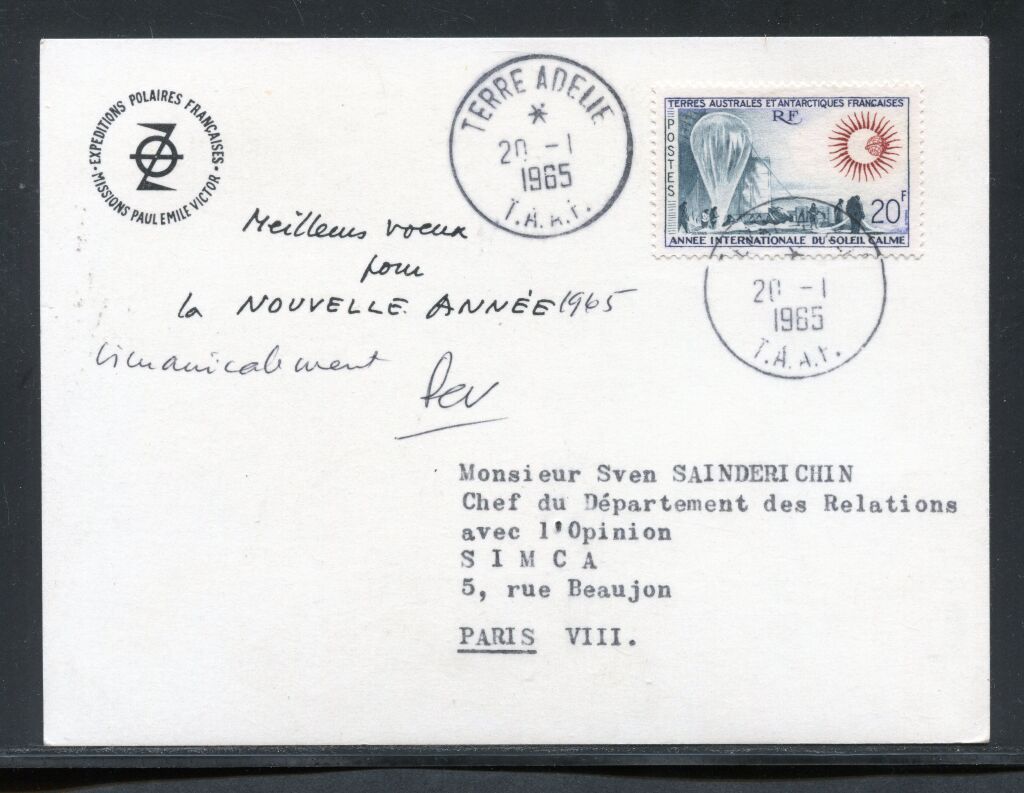 EXPEDITIONS POLAIRES FRANÇAISES
MISSIONS PAUL EMILE VICTOR
TERRE ADELIE
20 -1
1965
T.A.A.F.
TERRES AUSTRALES ET ANTARCTIQUES FRANÇAISES
RF
POSTES
20F
ANNÉE INTERNATIONALE DU SOLEIL CALME
20 -1
1965
T.A.A.F.
Meilleurs voeux
pour
la NOUVELLE ANNÉE 1965
Monsieur Sven SAINDERICHIN
Chef du Département des Relations
avec l'Opinion
S I M C A
5, rue Beaujon
PARIS VIII.